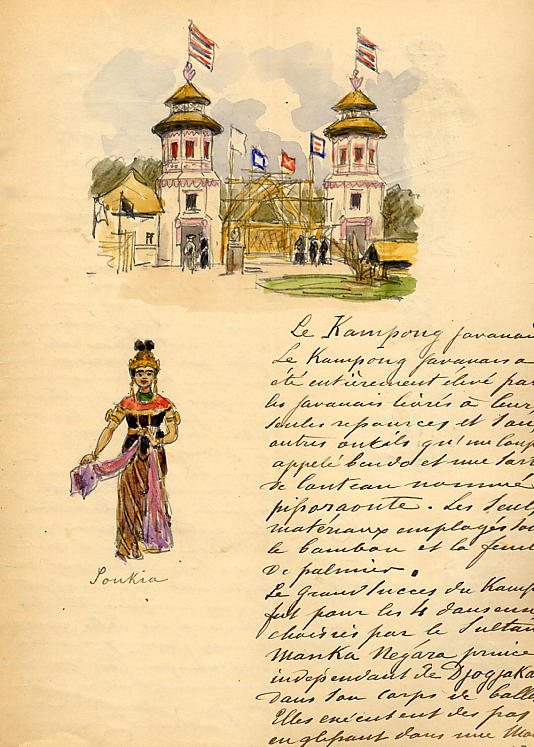 Le Kampong javanai
Le Kampong javanais a
été entièrement élevé par
les javanais livrés à leur
seules ressources et san
autres outils qu'une coup
appelé bendo et une sort
de couteau nommé
pissoraoute. Les seul
matériaux employés so
le bambou et la feuil
de palmier.
Le grand succès du Kamp
fut pour les 4 danseus
choisies par le Sultan
Manka Negara prince
indépendant de Djogjaka
dans son corps de balle
Elles exécutent des pas
en glissant dans une
Soukia